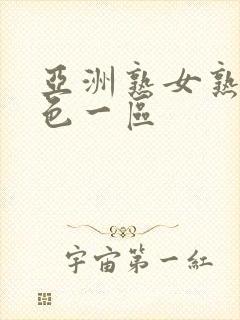 亞洲熟女熟
色一區
宇宙第一紅